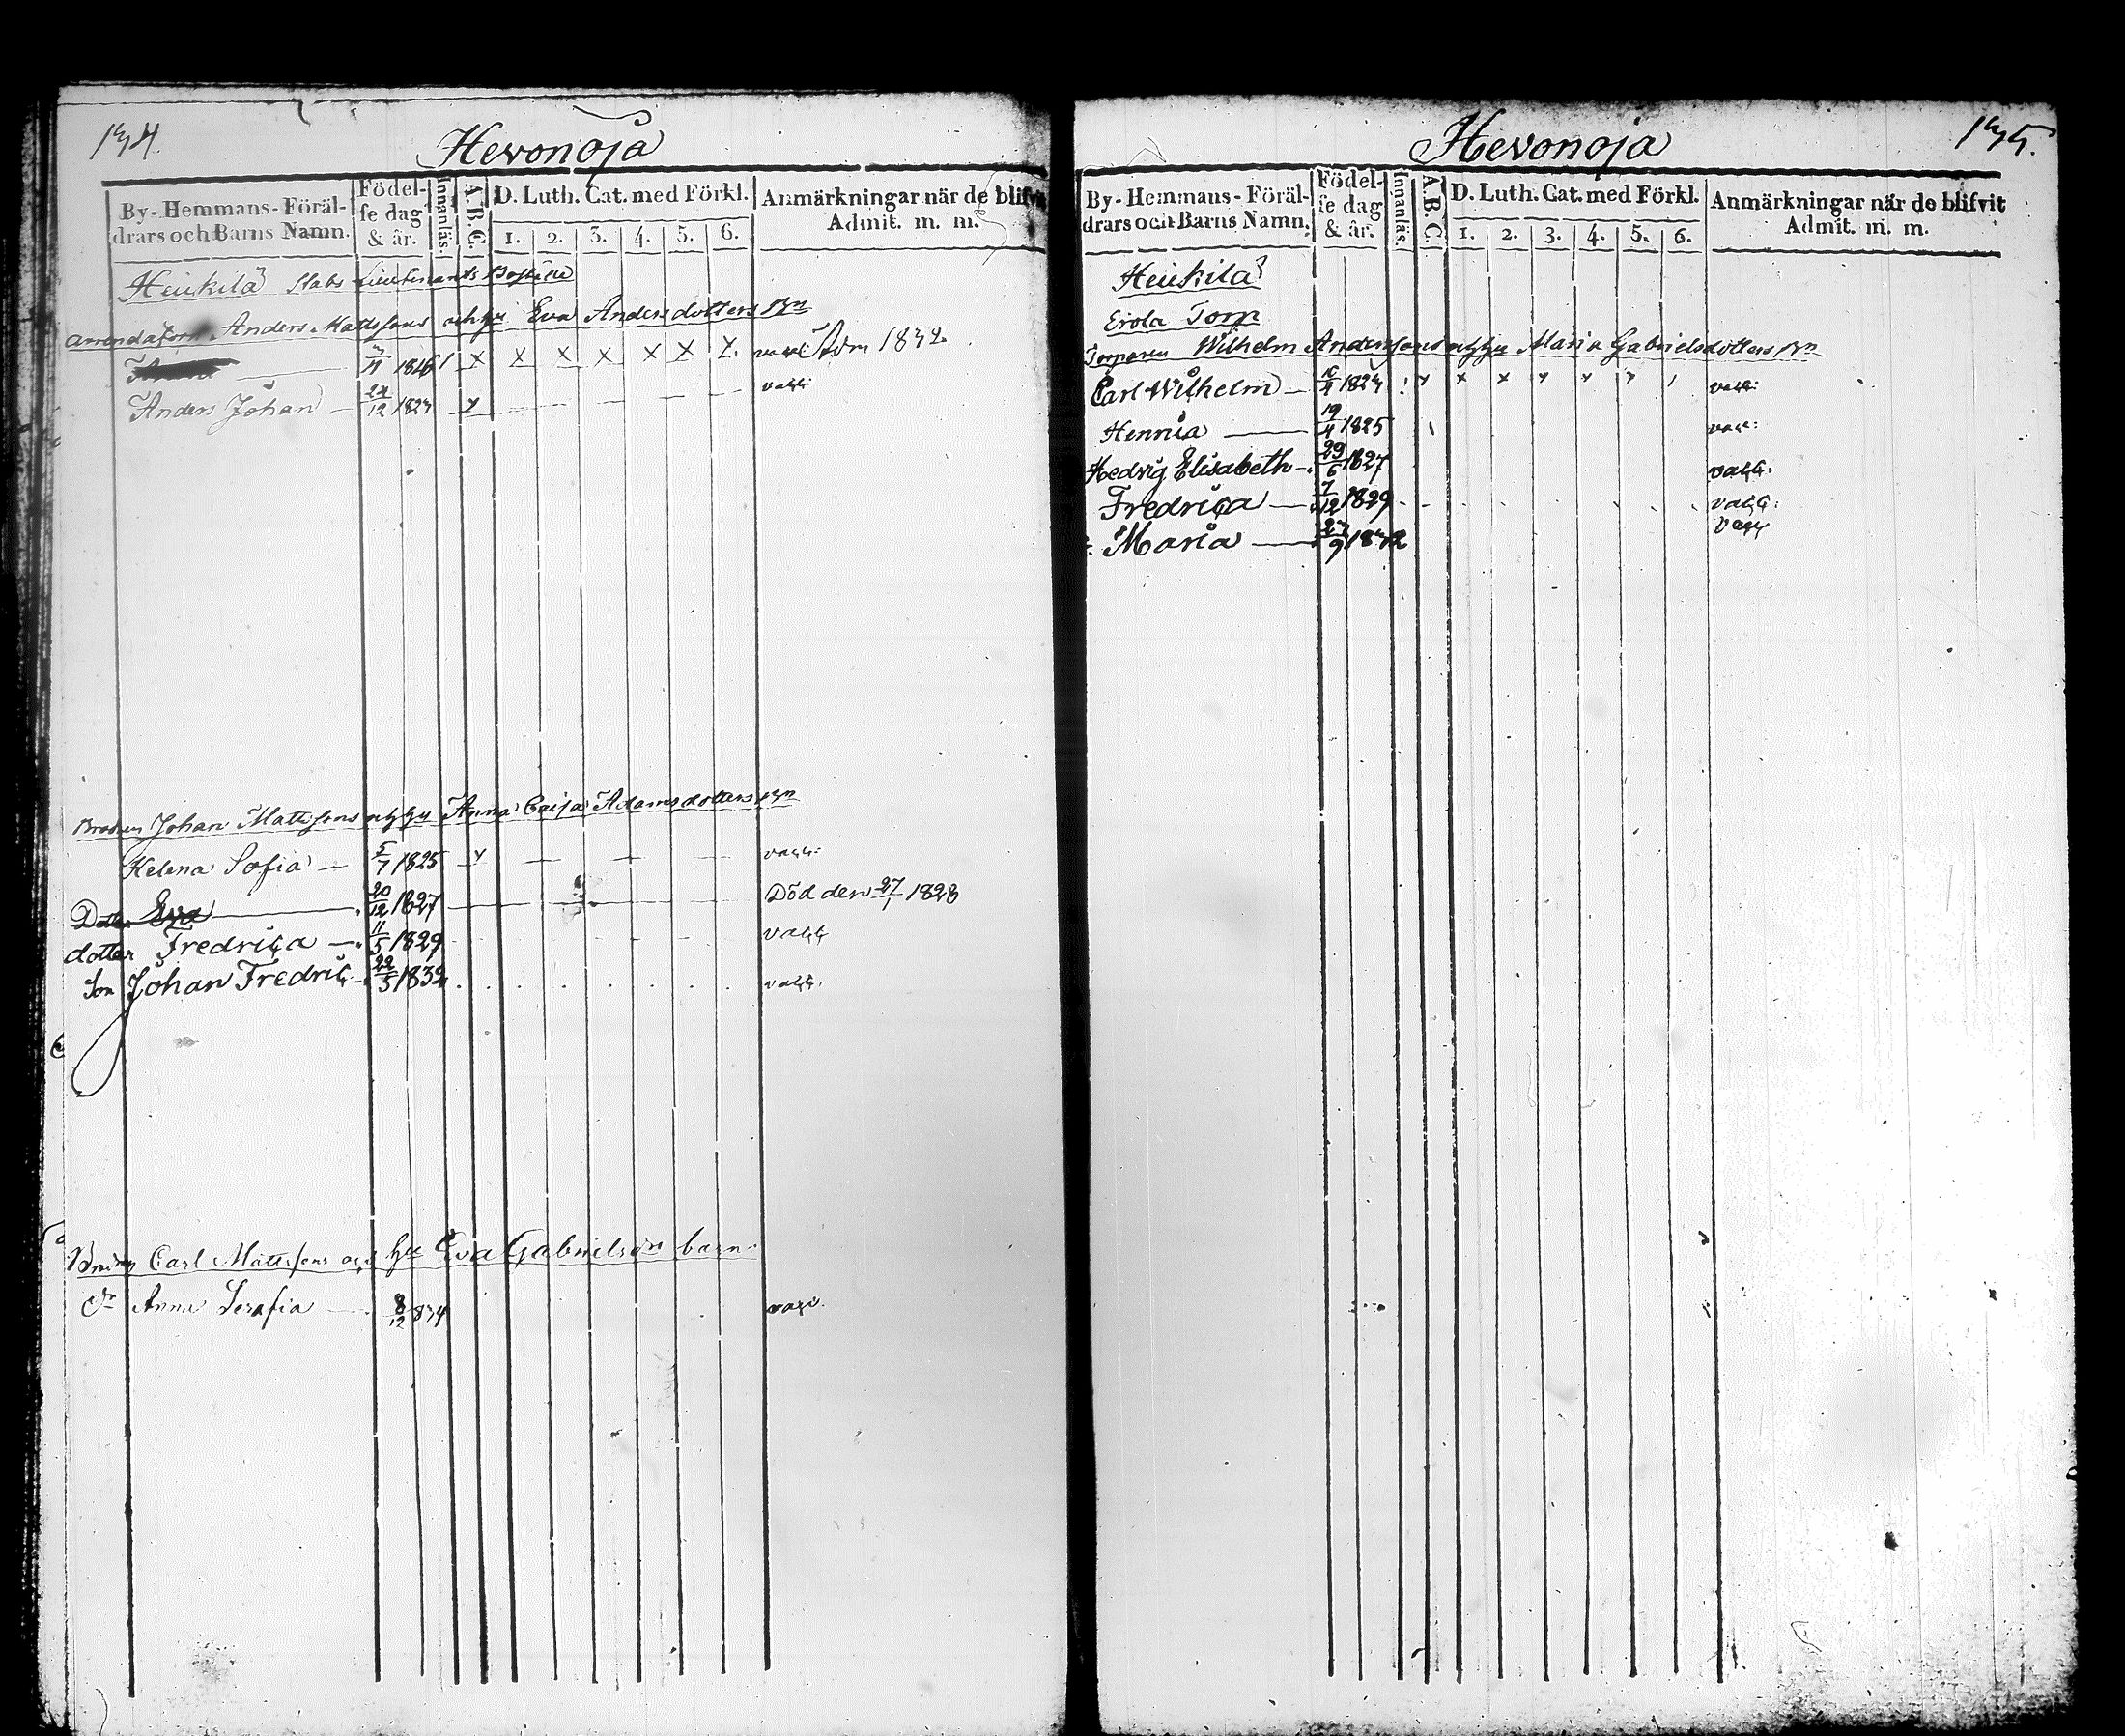 134.
Hevonoja
By- Hemmans- Föräl-
drars och Barns Namn.
Födel-
se dag
& år.
Innanläs.
A.B.C.
D. Luth. Cat. med Förkl.
1. 2. 3. 4. 5. 6.
Anmärkningar när de blifvit
Admit. m. m.
Heickilä Stabs Lieutenants Boställe
Anders Mattssons och hu Eva Andersdotters Bn
1816 / x x x x x x x. Adm 1832
Anders Johan — 12 1823 x vacc:
Brodren Johan Mattssons och hu Anna Caisa Adamsdotters Bn
Helena Sofia — 5/7 1825 vacc:
Dotter Eva — 20/12 1827 Död den 27/1 1828
dotter Fredrica — 11/5 1829 vacc
Son Johan Fredric — 22/5 1832 vacc.
Carl Mattssons och hu Eva Gabrielsdr barn
Anna Serafia — 8/12 834 vacc.
135.
Hevonoja
By- Hemmans- Föräl-
drars och Barns Namn.
Födel-
se dag
& år.
Innanläs.
A.B.C.
D. Luth. Cat. med Förkl.
1. 2. 3. 4. 5. 6.
Anmärkningar när de blifvit
Admit. m. m.
Heickilä
Erola Torp
Torparen Wilhelm Anderssons och hu Maria Gabrielsdotters Bn
Carl Wilhelm — 1823 vacc:
Henrica — 19/4 1825 vacc:
Hedvig Elisabeth — 29/6 1827 vacc.
Fredrica — 7/12 1829 vacc:
Maria — 23/9 1832 vacc